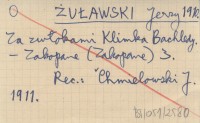 ŻUŁAWSKI Jerzy
Za zwłokami Klimka Bachledy.
- Zakopane (Zakopane) 3.
Rec.: Chmielowski J.
1911.